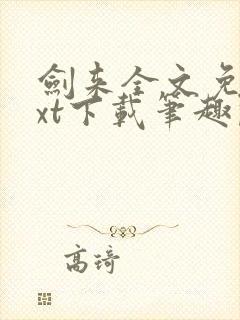 劍来全文免
xt下載筆趣
高琦